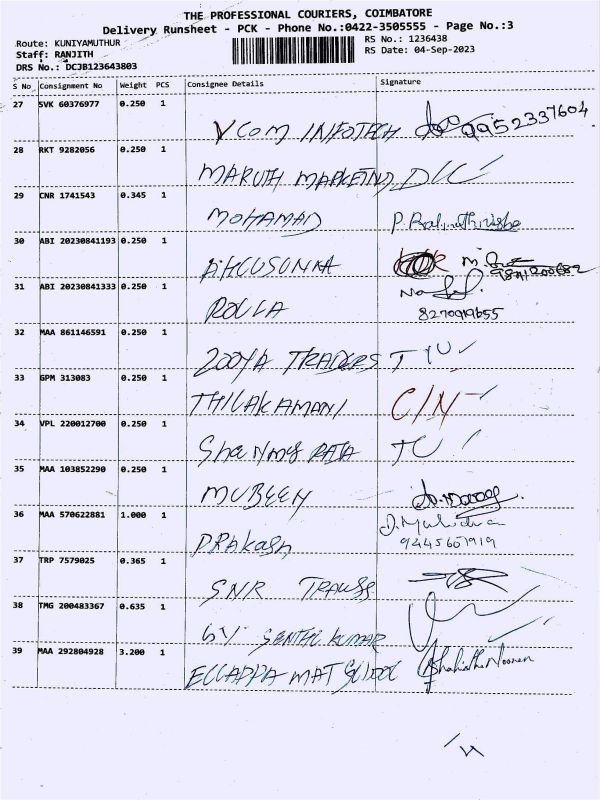 THE PROFESSIONAL COURIERS, COIMBATORE
Delivery Runsheet - PCK - Phone No.:0422-3505555 - Page No.:3
Route: KUNIYAMUTHUR
RS No.: 1236438
Staff: RANJITH
RS Date: 04-Sep-2023
DRS No.: DCJB123643803
S No Consignment No Weight PCS Consignee Details Signature
27 SVK 60376977 0.250 1
VCOM INFOTECH 9952337604
28 RKT 9282056 0.250 1
MARUTH MARKETING D/C
29 CNR 1741543 0.345 1
MOHAMAD
30 ABI 20230841193 0.250 1
31 ABI 20230841333 0.250 1
8270919655
32 MAA 861146591 0.250 1
ZOOYA TRADERS
33 GPM 313083 0.250 1
THILAKAMANI C/N
34 VPL 220012700 0.250 1
35 MAA 103852290 0.250 1
MUBEEN
36 MAA 570622881 1.000 1
PRAkASh
37 TRP 7579025 0.365 1
SNR TRANSS
38 TMG 200483367 0.635 1
SENTHIL KUMAR
39 MAA 292804928 3.200 1
ELLAPPA MAT SCHOOL